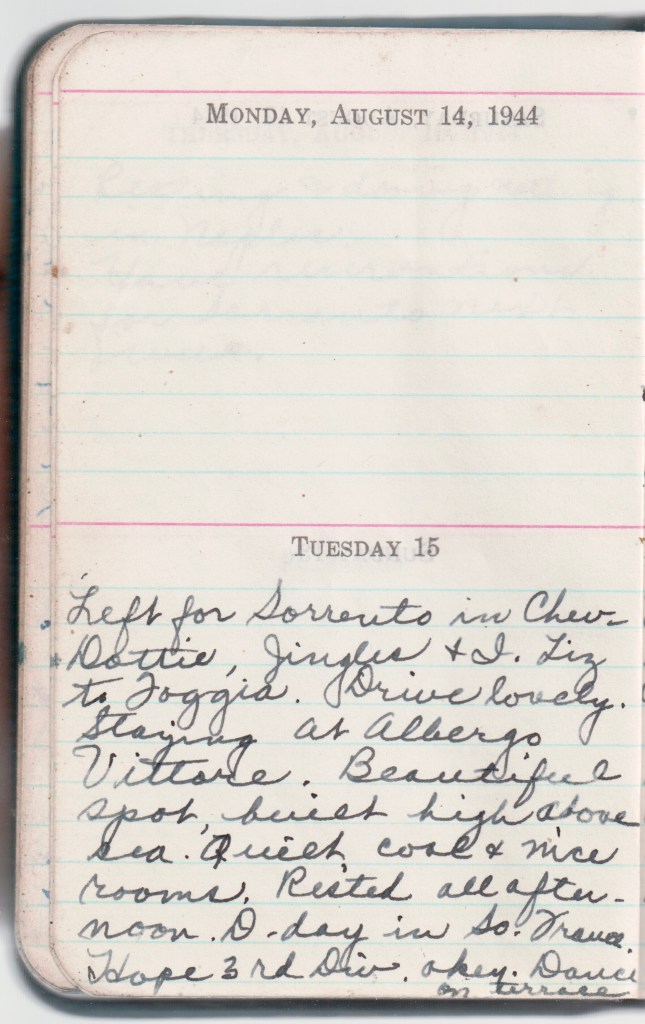 MONDAY, AUGUST 14, 1944
TUESDAY 15
Left for Sorrento in Chev-
Dottie, Jingles & I. Liz
to Foggia. Drive lovely.
Staying at Albergo
Vittore. Beautiful
spot, built high above
sea. Quiet, cool & nice
rooms. Rested all after-
noon. D-day in So. France.
Hope 3rd Div. okey. Dance
on terrace